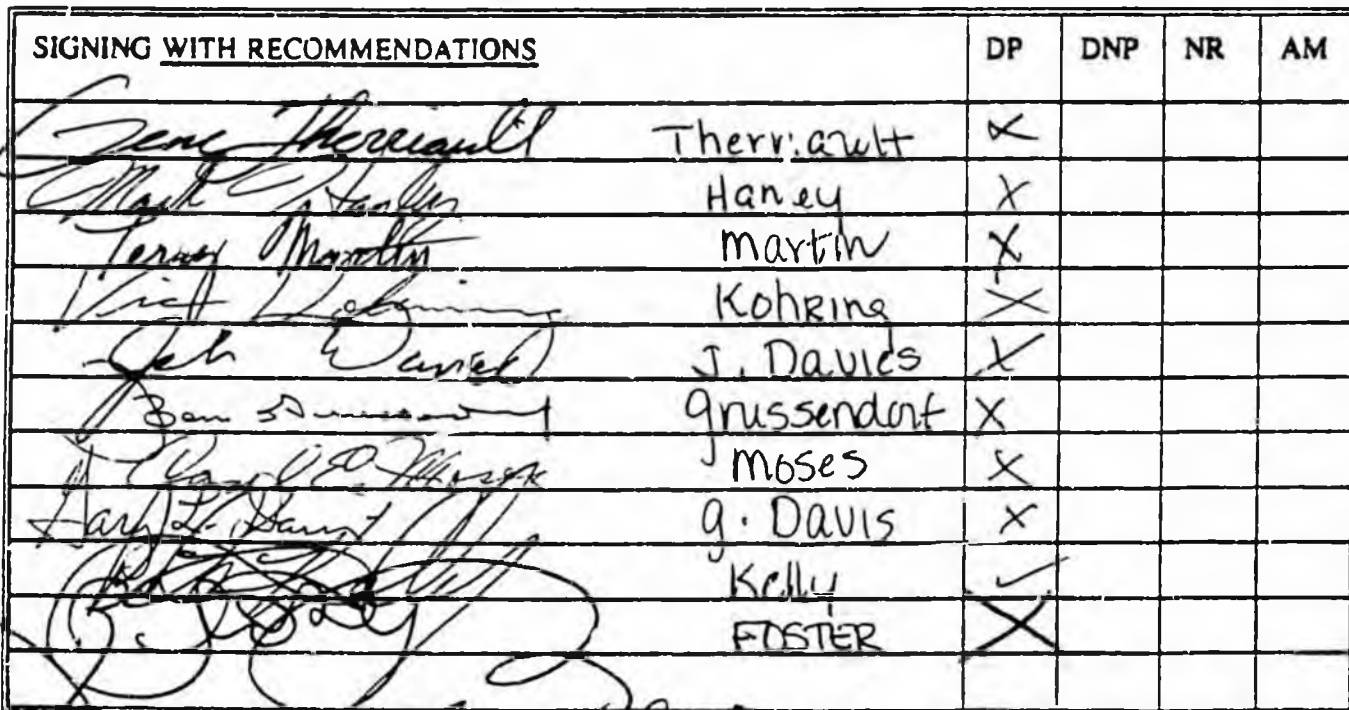 SIGNING WITH RECOMMENDATIONS DP DNP NR AM
Gene Therriault Therriault X
Mark Hanley Haney X
Terry Martin Martin X
Vic Kohring Kohring X
J. Davies X
Ben Grussendorf X
Moses X
Gary L. Davis G. Davis X
Kelly ✓
FOSTER X